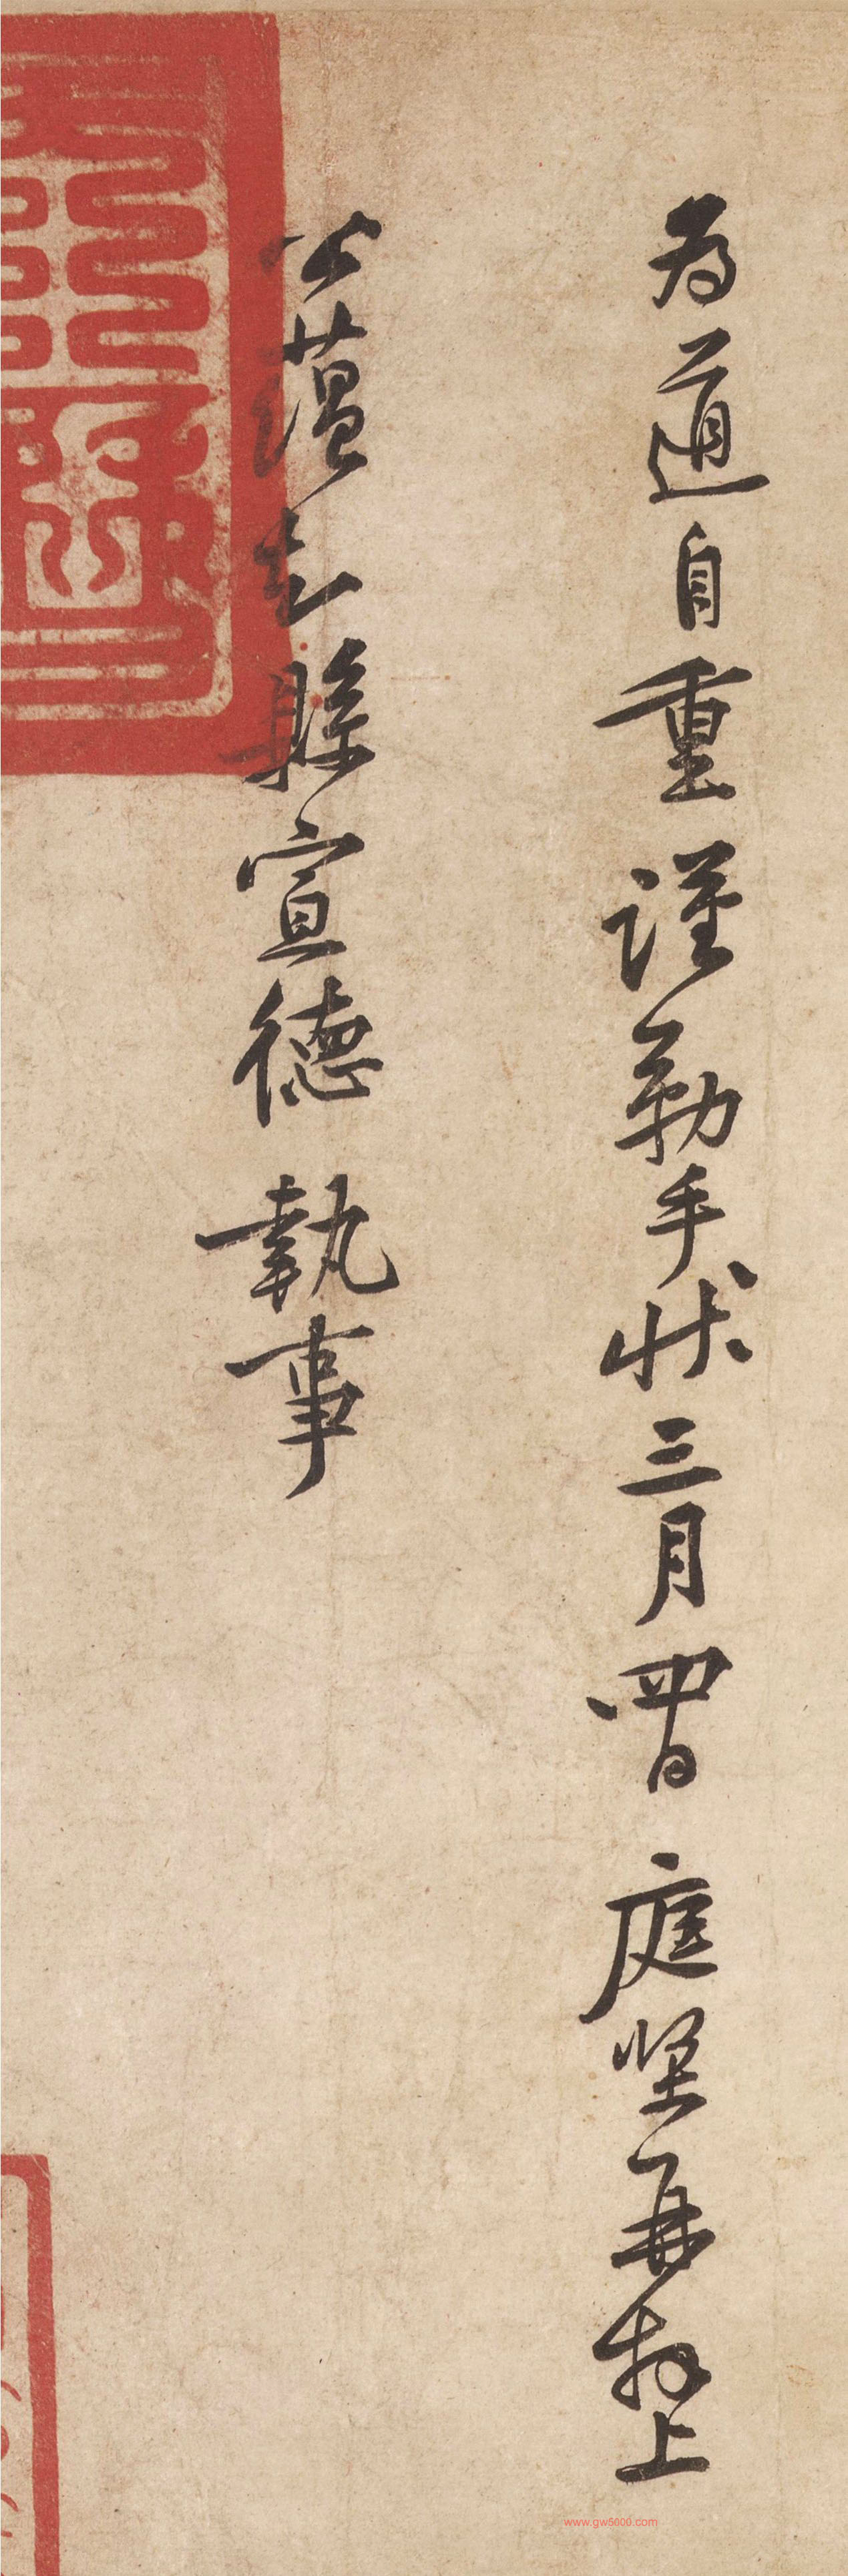 為道自重謹勒手狀三月四日 庭堅再拜上
公蘊知縣宣德 執事
www.gw5000.com